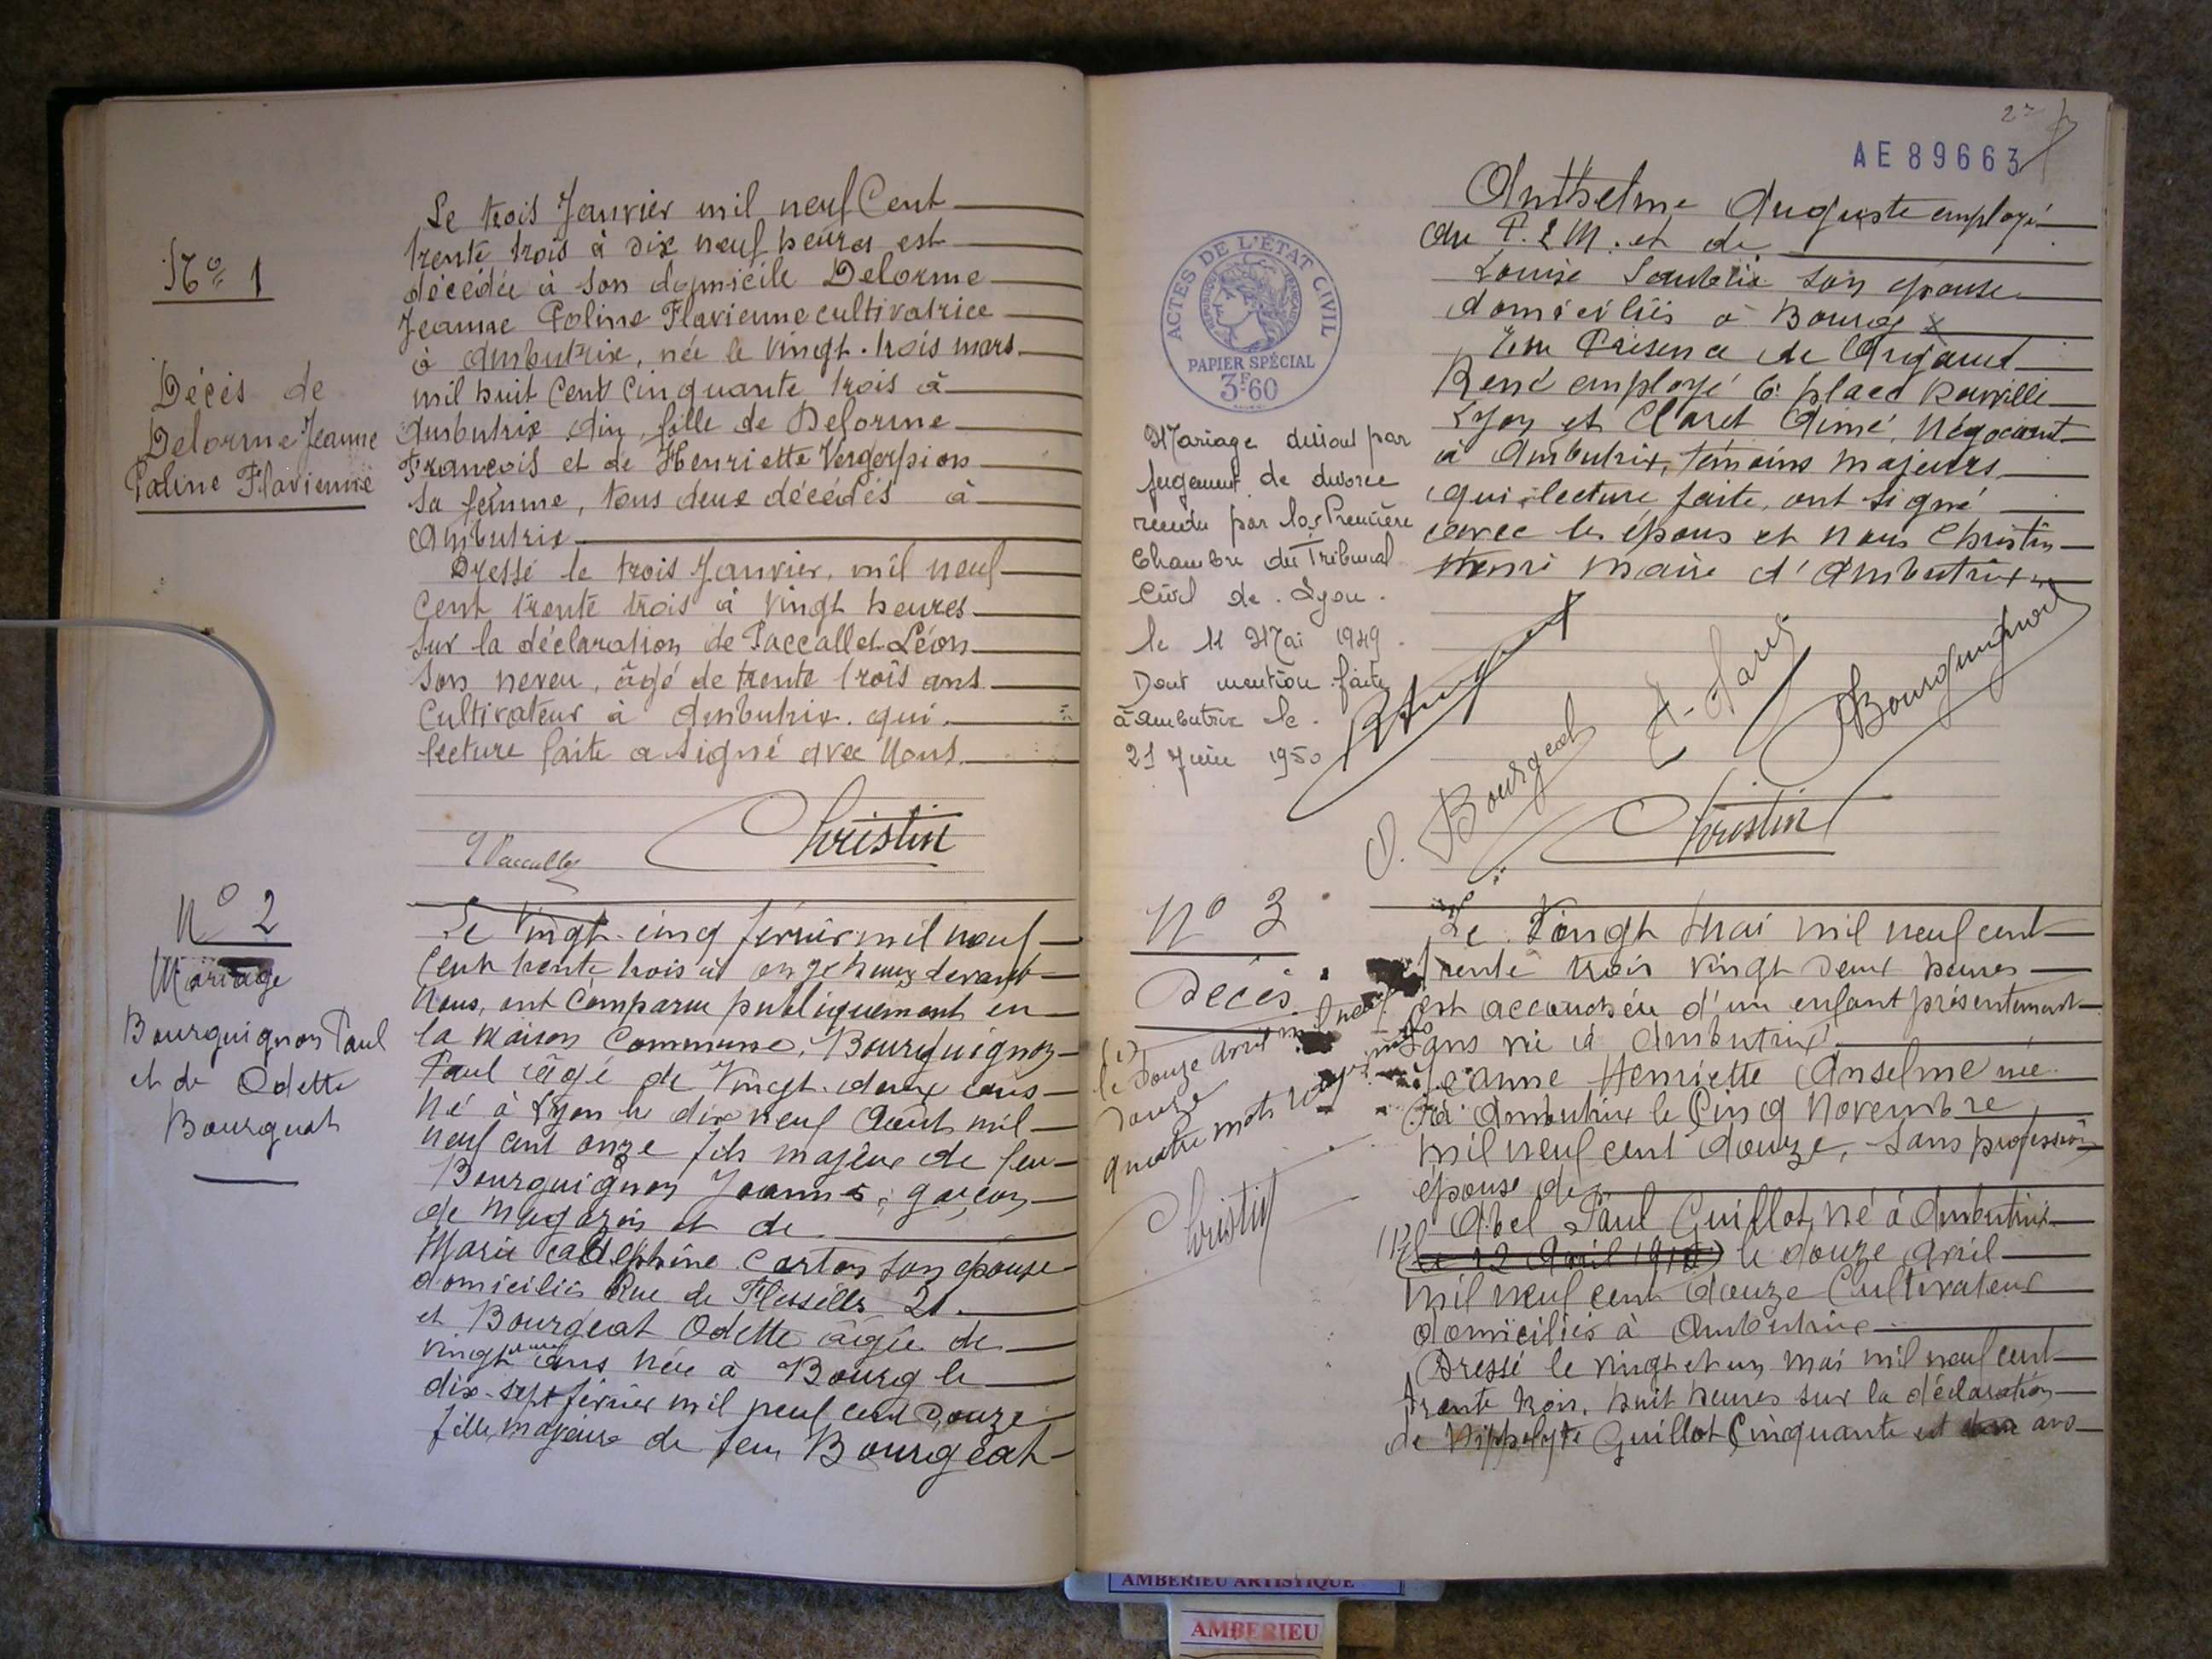 N° 1
Décès de
Delorme Jeanne
Poline Flavienne
Le trois Janvier mil neuf Cent
trente trois à dix neuf heures est
décédée à son domicile Delorme
Jeanne Poline Flavienne cultivatrice
à Ambutrix, née le vingt-trois mars
mil huit Cent Cinquante trois à
Ambutrix Ain, fille de Delorme
François et de Henriette
sa femme, tous deux décédés à
Ambutrix
Dressé le trois Janvier, mil neuf
Cent trente trois à vingt heures
sur la déclaration de Paccallet Léon
son neveu, âgé de trente trois ans
Cultivateur à Ambutrix. qui
lecture faite a signé avec Nous.
Christin
N° 2
Mariage
Bourguignon Paul
et de Odette
Bourgeat
Le Vingt-cinq février mil neuf
Cent trente trois à onze heures devant
Nous, ont comparu publiquement en
la Maison Commune, Bourguignon
Paul âgé de Vingt-deux ans
Né à Lyon le dix neuf Août mil
neuf cent onze fils majeur de feu
Bourguignon Joannes, garçon
de Magasin et de
Marie Carton son épouse
domiciliés Rue de Flesselles 21.
et Bourgeat Odette âgée de
vingt et un ans née à Bourg le
dix-sept février mil neuf cent Douze
fille majeure de feu Bourgeat
AE 89663
Anthelme Auguste employé
au P.L.M. et de
Louise son épouse
domiciliés à Bourg
En Présence de Argaud
René employé 6 place Rouville
Lyon et Claret Aimé, Négociant
à Ambutrix, témoins majeurs
qui, lecture faite, ont signé
avec les époux et Nous Christin
Henri Maire d'Ambutrix
ACTES DE L'ÉTAT CIVIL
RÉPUBLIQUE FRANÇAISE
PAPIER SPÉCIAL
3F.60
Mariage dissout par
jugement de divorce
rendu par la Première
Chambre du Tribunal
Civil de Lyon.
le 11 Mai 1949.
Dont mention faite
à Ambutrix le
21 Juin 1950
O. Bourgeat
Bourguignon
Christin
N° 3
Décès
(1)
le Douze Avril mil neuf cent
Douze
quatre mots rayés nuls
Christin
Le Vingt Mai mil neuf cent
trente trois vingt deux heures
est accouchée d'un enfant présentement
sans vie à Ambutrix
Jeanne Henriette Anselme née
à Ambutrix le Cinq Novembre
mil neuf cent douze, sans profession
épouse de
Abel Paul Guillot, né à Ambutrix
(1) (le 12 Avril 1912) le douze avril
mil neuf cent douze Cultivateur
domiciliés à Ambutrix
Dressé le vingt et un mai mil neuf cent
trente trois, huit heures sur la déclaration
de Hippolyte Guillot Cinquante et ans
AMBERIEU ARTISTIQUE
AMBERIEU